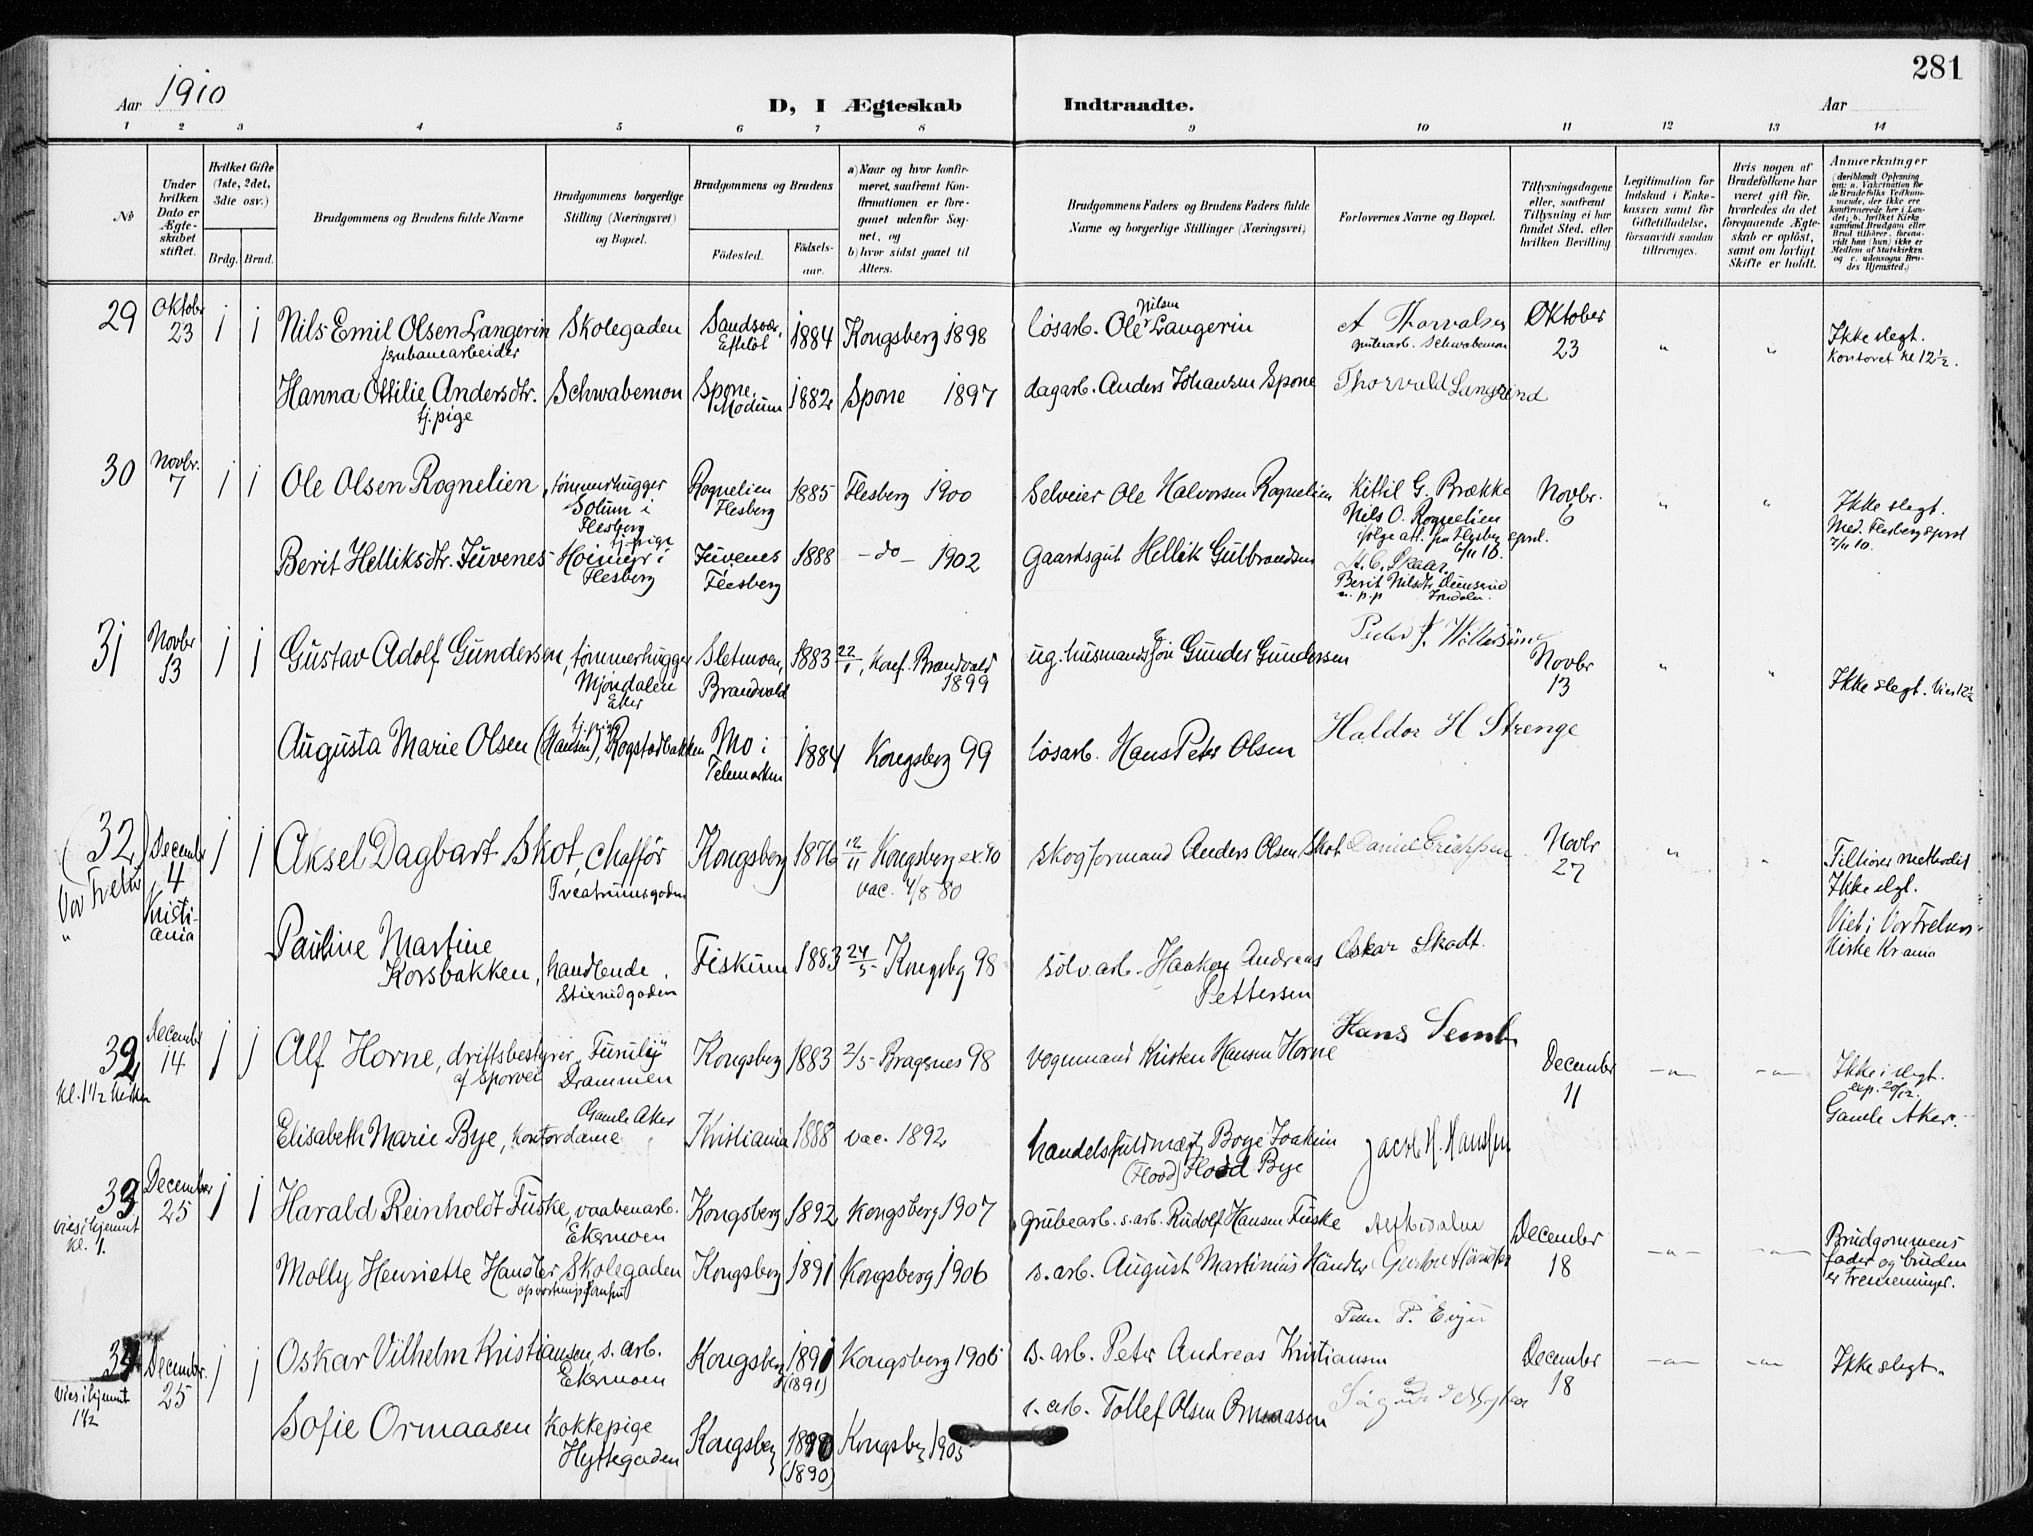 281
Aar 1910
D, I Ægteskab Indtraadte.
Aar
1 2 3 4 5 6 7 8 9 10 11 12 13 14
No
Under hvilken Dato er Ægteskabet stiftet.
Hvilket Gifte (1ste, 2det, 3die osv.)
Brdg. Brud.
Brudgommens og Brudens fulde Navne
Brudgommens borgerlige Stilling (Næringsvei) og Bopæl.
Brudgommens og Brudens
Fødested.
Fødsels-aar.
a) Naar og hvor konfirmeret, saafremt Konfirmationen er foregaaet udenfor Sognet, og
b) hvor sidst gaaet til Alters.
Brudgommens Faders og Brudens Faders fulde Navne og borgerlige Stillinger (Næringsvei)
Forlovernes Navne og Bopæl.
Tillysningsdagene eller, saafremt Tillysning ei har fundet Sted, efter hvilken Bevilling
Legitimation for Indskud i Enkekassen samt for Giftetilladelse, forsaavidt saadan tiltrænges.
Hvis nogen af Brudefolkene har været gift før, hvorledes da det foregaaende Ægteskab er opløst, samt om lovligt Skifte er holdt.
Anmærkninger (deriblandt Oplysning om: a. Vaccination for de Brudefolks Vedkommende, der ikke ere konfirmerede her i Landet; b. hvilket Kirkesamfund Brudgom eller Brud tilhører, forsaavidt han (hun) ikke er Medlem af Statskirken og c. udensogns Brudes Hjemsted.)
29 Oktobr 23 1 1 Nils Emil Olsen Langerin Skolegaden Sandsvær, Efteløt 1884 Kongsberg 1898 løsarb. Ole Nilsen Langerin A Thorvalsen Oktober 23 " " Ikke slegt.
jernbanearbeider grubearb. Schwabemoen Kontoret kl 12½.
Hanna Ottilie Andersdtr. Schwabemon Spone, Modum 1882 Spone 1897 dagarb. Anders Johansen Spone Thorvald Langerind
tj.pige
30 Novbr. 7 1 1 Ole Olsen Rognelien, tømmerhugger Rognelien Flesberg 1885 Flesberg 1900 Selveier Ole Halvorsen Rognelien Kittil G. Brække Novbr. 6 " " Ikke slegt.
Solum i Flesberg Nils O. Rognelien Med. Flesberg sprst 7/11 10.
tj.pige
Berit Helliksdtr. Juvenes Høimyr i Flesberg Juvenes Flesberg 1888 - do - 1902 Gaardsgut Hellik Gulbrandsen
H. C. Skaar,
31 Novbr 13 1 1 Gustav Adolf Gundersen, tømmerhugger Sletmoen, Brandvold 1883 22/1, Konf. Brandvold 1899 ug. husmandssøn Gunder Gundersen Novbr 13 " " Ikke slegt. Vies 12½
Mjøndalen Eker
Augusta Marie Olsen (Hansen), tj.pige Rogstadbakken Mo i Telemarken 1884 Kongsberg 99 løsarb. Hans Peter Olsen Haldor H Strenge
(32) December 4 1 1 Aksel Dagbart Skot, chaffør Kongsberg 1876 12/11 Kongsberg ex. 90 skogformand Anders Olsen Skot Novbr 27 " " Tilhører methodist
Vor Frelser Kristiania vac. 4/8 80 Ikke slgt.
Viet i Vor Frelsers Kirke Krania
Pauline Martine Korsbakken, handlende, Fiskum 1883 24/5 Kongsbg 98 sølvarb. Haaken Andreas Pettersen Oskar Skodt.
32 December 14 1 1 Alf Horne, driftsbestyrer Kongsberg 1883 2/5 Bragernes 98 Vognmand Kristen Hansen Horne Hans Semb December 11 -"- -"- Ikke i slegt.
kl. 1½ Kirken af sporvei Drammen exp. 20/12.
Gamle Aker
Elisabeth Marie Bye, kontordame Kristiania 1888 vac. 1892 handelsfuldmægt. Boye Joakim (Flood) Flood Bye Jacob H. Hanssen Gamle Aker.
33 December 25 1 1 Harald Reinholdt Fuske, vaabenarb. Kongsberg 1892 Kongsberg 1907 grubearb. s. arb. Rudolf Hansen Fuske December 18 -"- -"- Brudgommens fader og bruden er tremeninger.
vies i hjemmet kl. 1. Ekermoen
Molly Henriette Handler, Skolegaden Kongsberg 1891 Kongsberg 1906 s. arb. August Martinius Händler
34 December 25 1 1 Oskar Vilhelm Kristiansen, s. arb. Kongsberg 1891 (1891) Kongsberg 1906 s. arb. Peter Andreas Kristiansen December 18 -"- -"- Ikke slegt.
Vies i hjemmet 1½ Ekermoen
Sofie Ormaasen Kokkepige Hyttegaden Kongsberg 1890 (1890) Kongsberg 1905 s. arb. Tollef Olsen Ormaasen